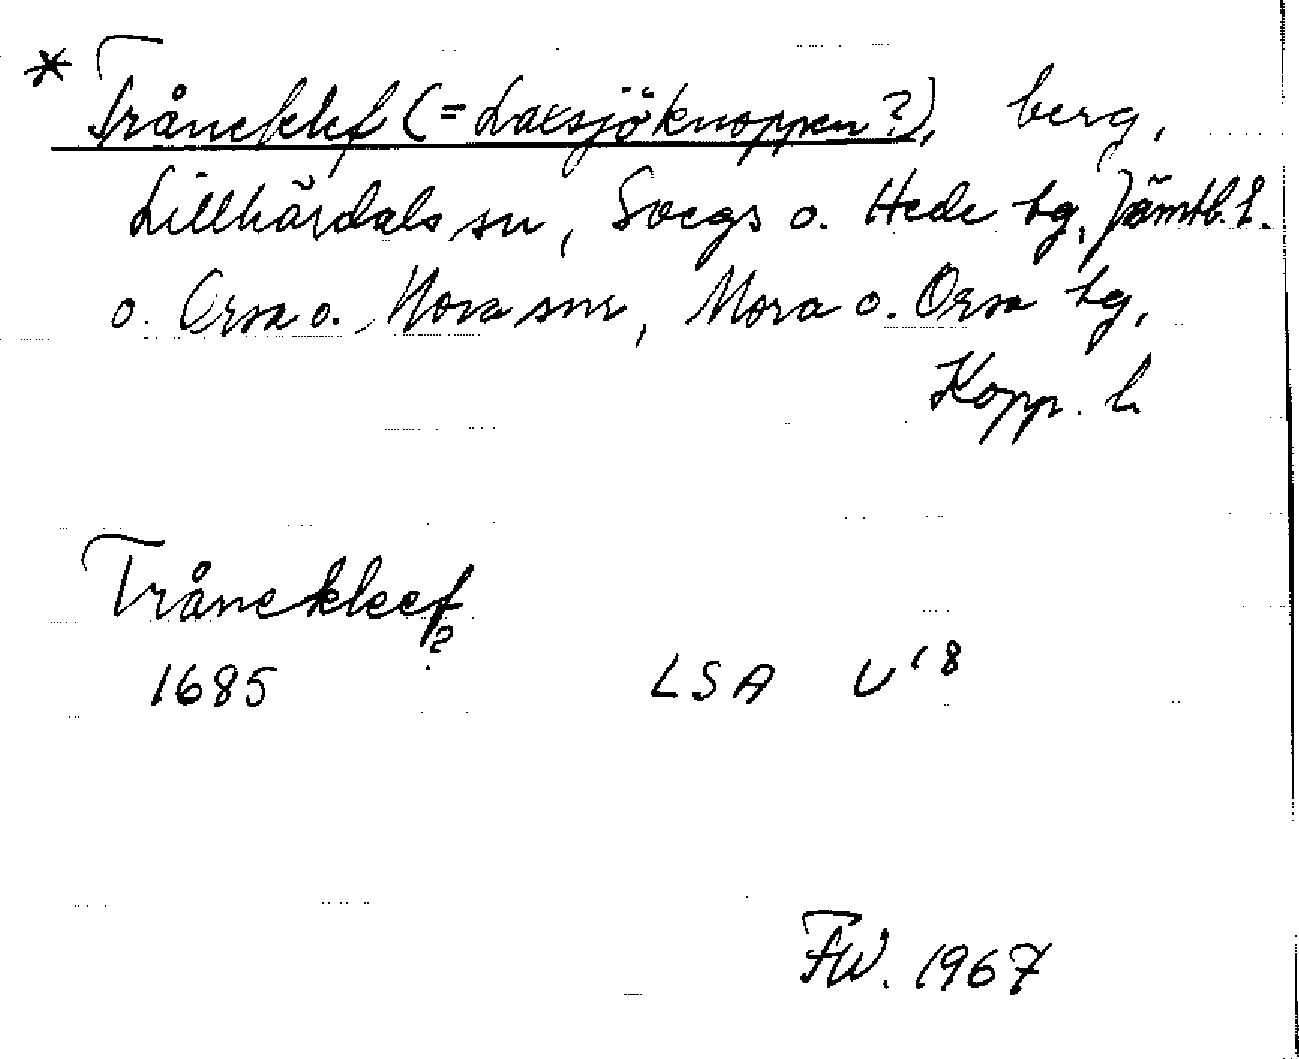 * Tråneklef (= Laxsjöknoppen?), berg,
Lillhärdals sn, Svegs o. Hede tg, Jämtl. l.
o. Orsa o. Mora snr, Mora o. Orsa tg,
Kopp. l.
Trånekleef
?
1685 LSA U 18
FW. 1967